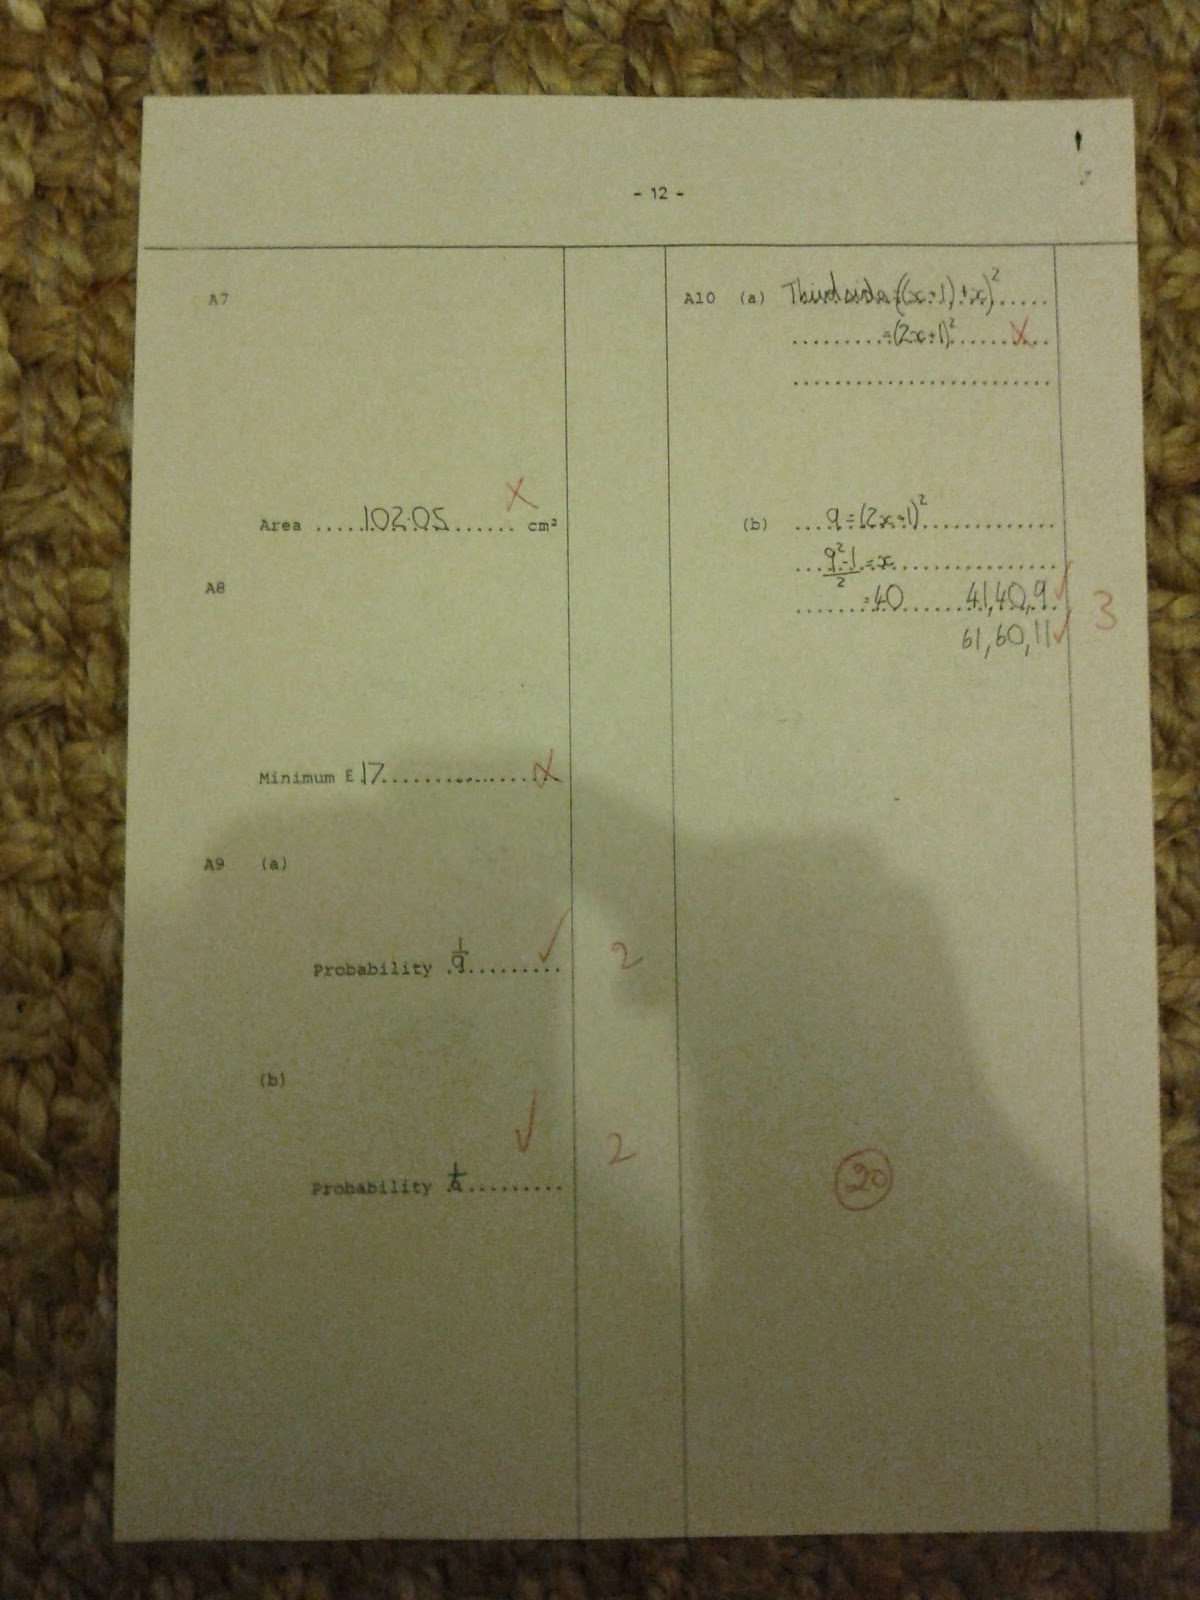 - 12 -
A7
Area ....102.05...... cm²
A8
Minimum E 17
A9 (a)
Probability 1/9
2
(b)
Probability
2
A10 (a) Third side = ((x+1)+x)²
=(2x+1)²
(b) 9=(2x+1)²
9²-1/2 =x
=40 41,40,9
61,60,11
3
20